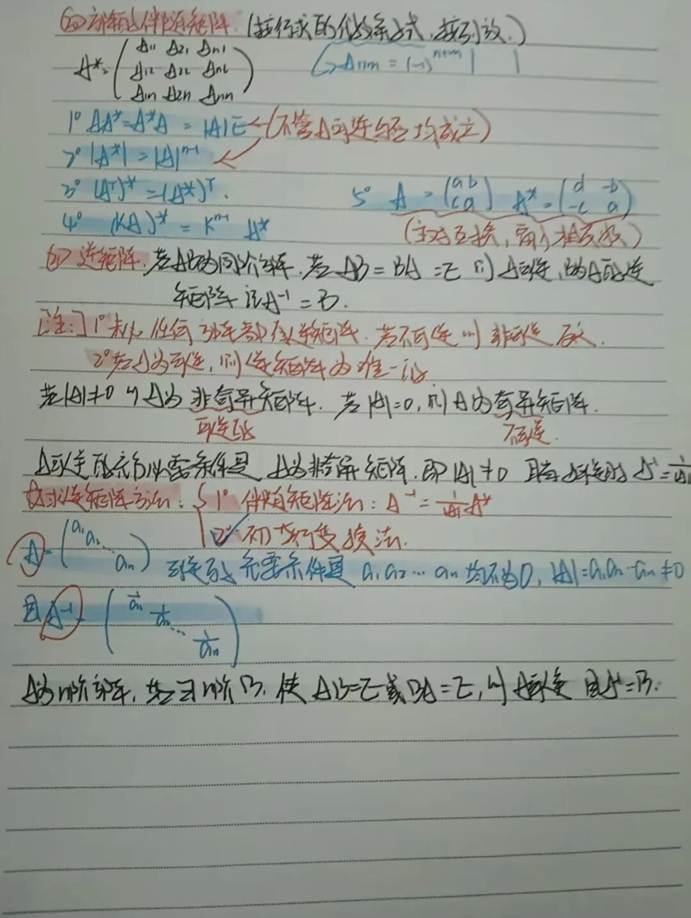 (6) 方阵的伴随矩阵.(按行求的代数余子式,按列放.)
A*=(A11 A21 An1
A12 A22 An2
A1n A2n Ann)
Anm = (-1)^{n+m} | |
1° AA*=A*A = |A|E ← (不管A可逆与否均成立)
2° |A*| = |A|^{n-1}
3° (A^T)* = (A*)^T.
4° (KA)* = K^{n-1} A*
5° A = (a b
c d) A* = (d -b
-c a)
(主对互换,副对相反数)
逆矩阵.若AB为同阶方阵,若AB=BA=E 则A可逆,
矩阵 记A^{-1} = B.
[注:] 1° 任何 都 逆矩阵.若不可逆
2° 若A为可逆,则逆矩阵为唯一的
若|A|≠0 则A为 非奇异矩阵.若|A|=0,则A为奇异矩阵.
可逆的 不可逆.
A可逆的充分必要条件是 A为非奇异矩阵.即|A|≠0 且 A可逆时 A^{-1}=1/|A|
求逆矩阵方法:{1° 伴随矩阵法:A^{-1} = 1/|A| A*
2° 初等行变换法.
A=(a1
a2
...
an) 可逆的充要条件是 a1,a2…an均不为0,|A|=a1a2…an≠0
且A^{-1} (1/a1
1/a2
...
1/an)
A为n阶方阵,若∃n阶B,使AB=E或BA=E,则A可逆 且A^{-1}=B.